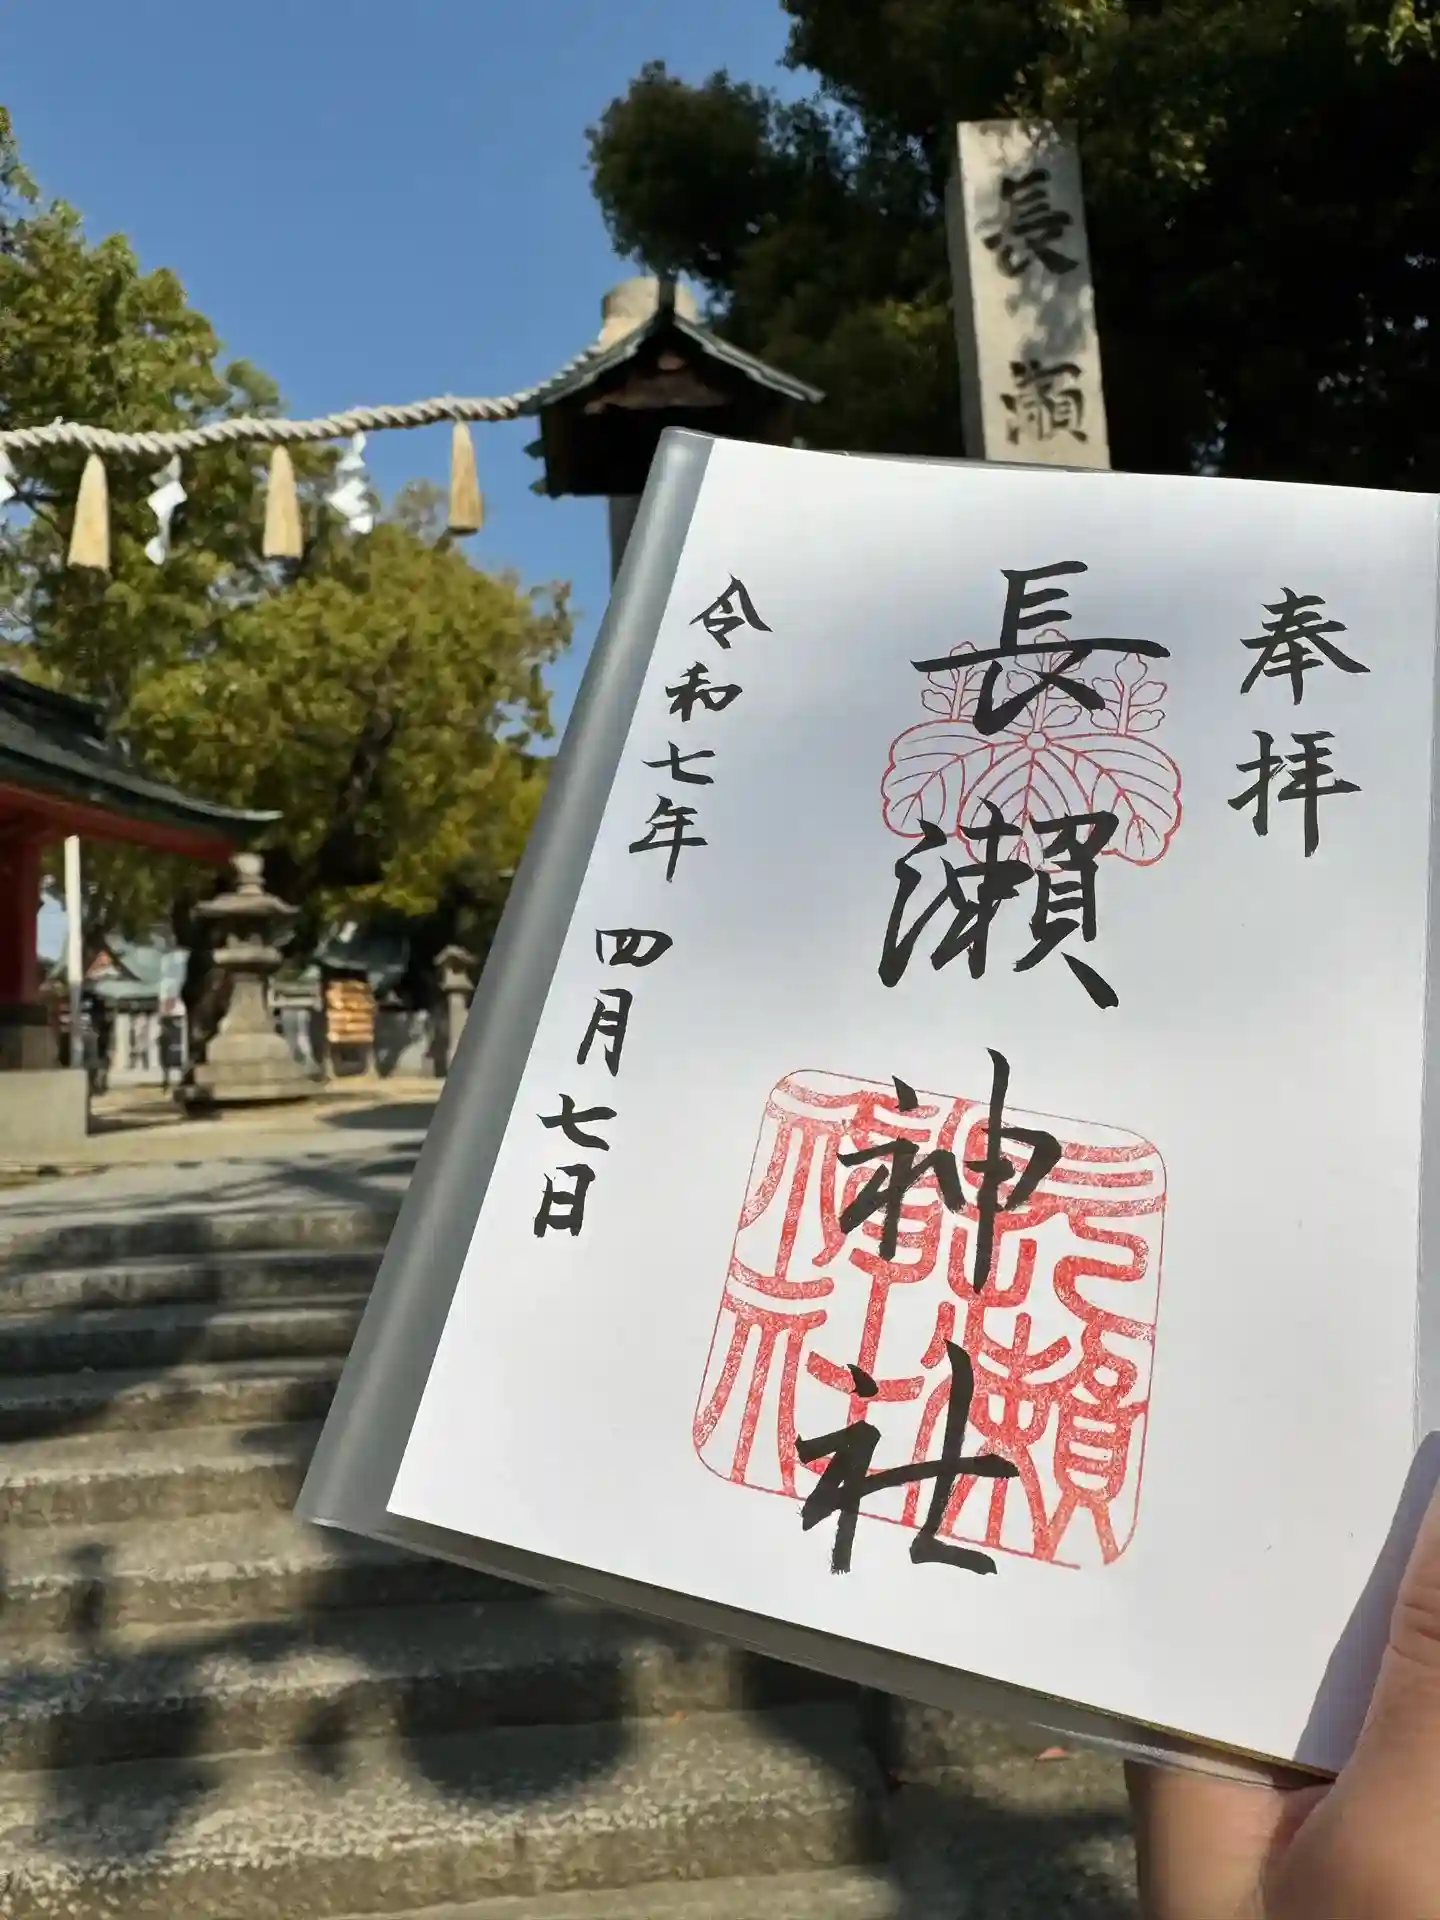 長瀬
奉拝
長瀬神社
長瀬神社
令和七年 四月七日